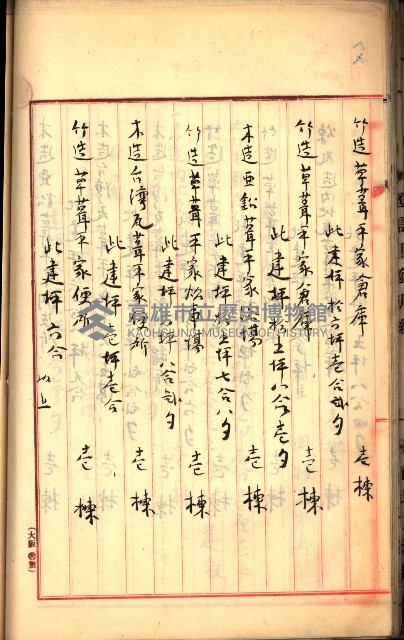 竹造草葺平家倉庫 壱棟
此建坪拾六坪壱合弐夕
竹造草葺平家倉庫 壱棟
此建坪拾五坪八合壱夕
木造亜鉛葺平家工場 壱棟
此建坪拾五坪七合八夕
竹造草葺平家炊事場 壱棟
此建坪 坪八合弐夕
木造台湾瓦葺平家便所 壱棟
此建坪壱坪壱合
竹造草葺平家便所 壱棟
此建坪六合
以上
高雄市立歷史博物館
KAOHSIUNG MUSEUM OF HISTORY